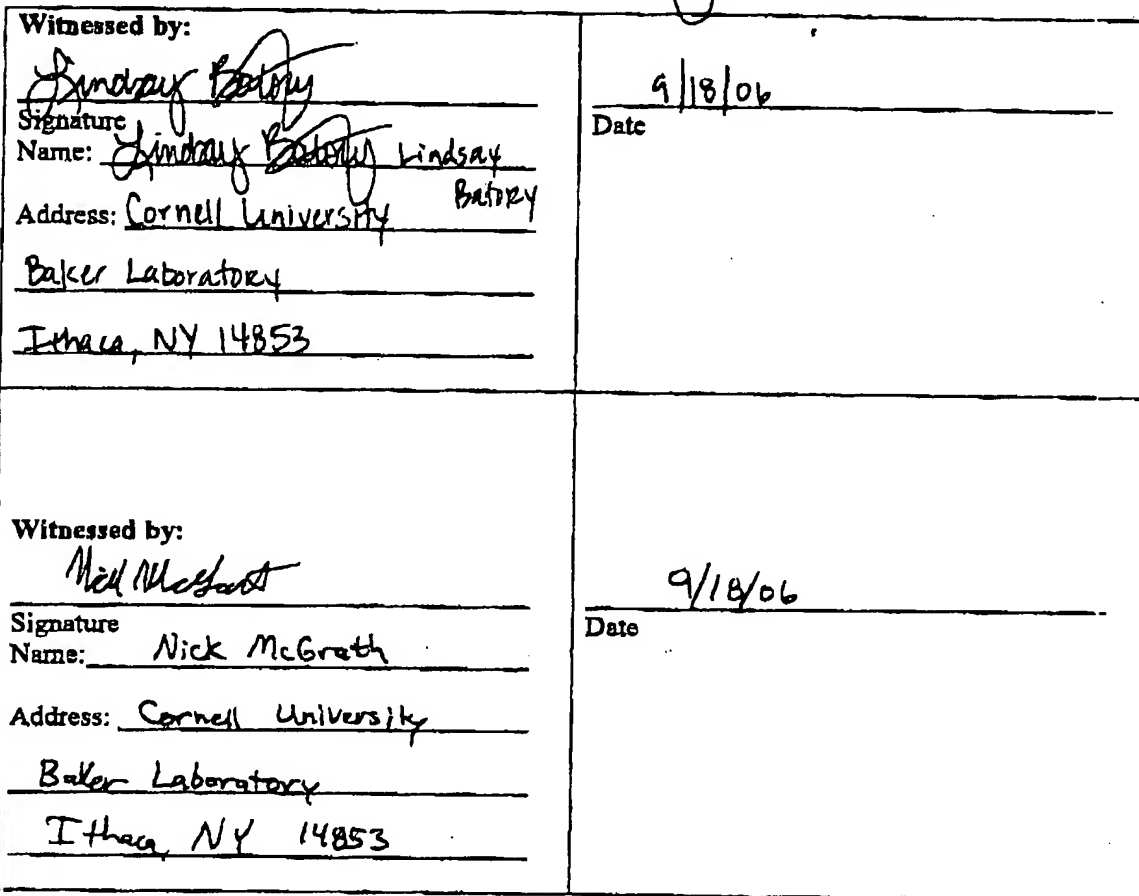 Witnessed by:
Lindsay Batory
9/18/06
Signature
Date
Name: Lindsay Batory Lindsay
Batory
Address: Cornell University
Baker Laboratory
Ithaca, NY 14853
Witnessed by:
Nick McGrath
9/18/06
Signature
Date
Name: Nick McGrath
Address: Cornell University
Baker Laboratory
Ithaca, NY 14853